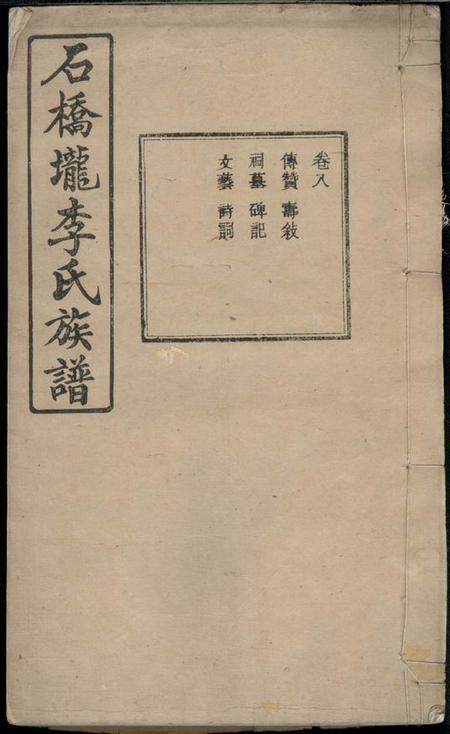 石橋壠李氏族譜
卷八
傳贊 壽敍
祠墓 碑記
文藝 詩詞